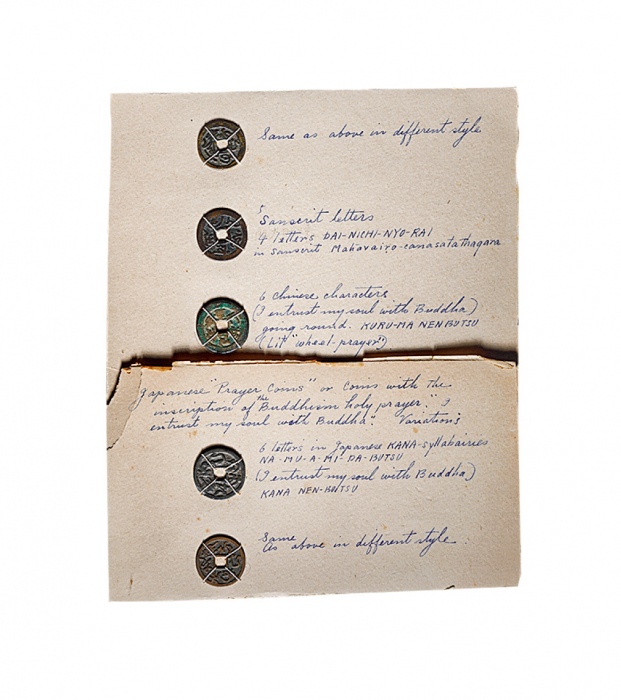 Same as above in different style
5
Sanscrit letters
4 letters DAI-NICHI-NYO-RAI
in Sanscrit Mahavairo-canasatathagara
6 Chinese characters
(I entrust my soul with Buddha)
going round. KURU-MA NENBUTSU
(Lit "wheel-prayer")
Japanese "Prayer Coins" or Coins with the
inscription of the Buddhism holy prayer." I
entrust my soul with Buddha". Variations
6 letters in Japanese KANA-syllabairies
NA-MU-A-MI-DA-BUTSU
(I entrust my soul with Buddha)
KANA NEN-BUTSU
Same
As above in different style.